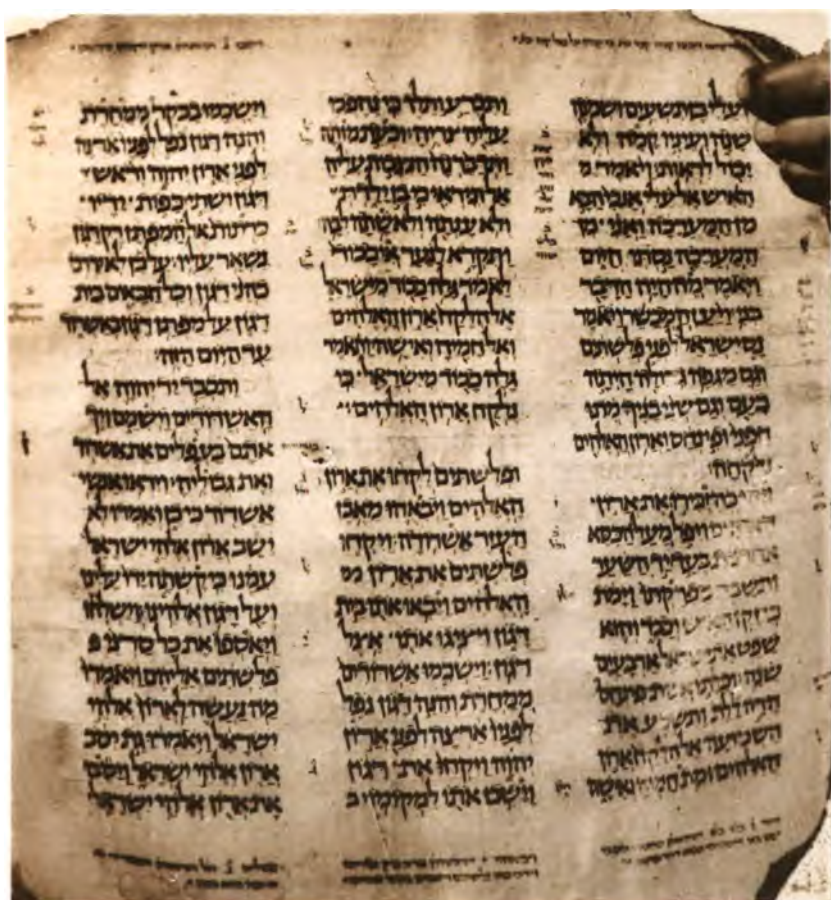 ועלי בן תשעים ושמנה
שנה ועיניו קמה ולא
יכול לראות ויאמר
האיש אל עלי אנכי הבא
מן המערכה ואני מן
המערכה נסתי היום
ויאמר מה היה הדבר
בני ויען המבשר ויאמר
נס ישראל לפני פלשתים
וגם מגפה גדולה היתה
בעם וגם שני בניך מתו
חפני ופינחס וארון האלהים
נלקחה
ויהי כהזכירו את ארון
האלהים ויפל מעל הכסא
אחרנית בעד יד השער
ותשבר מפרקתו וימת
כי זקן האיש וכבד והוא
שפט את ישראל ארבעים
שנה וכלתו אשת פינחס
הרה ללת ותשמע את
השמעה אל הלקח ארון
האלהים ומת חמיה ואישה
ותכרע ותלד כי נהפכו
עליה צריה וכעת מותה
ותדברנה הנצבות עליה
אל תיראי כי בן ילדת
ולא ענתה ולא שתה לבה
ותקרא לנער אי כבוד
לאמר גלה כבוד מישראל
אל הלקח ארון האלהים
ואל חמיה ואישה ותאמר
גלה כבוד מישראל כי
נלקח ארון האלהים
ופלשתים לקחו את ארון
האלהים ויבאהו מאבן
העזר אשדודה ויקחו
פלשתים את ארון
האלהים ויבאו אתו בית
דגון ויציגו אתו אצל
דגון וישכמו אשדודים
ממחרת והנה דגון נפל
לפניו ארצה לפני ארון
יהוה ויקחו את דגון
וישבו אתו למקומו
וישכמו בבקר ממחרת
והנה דגון נפל לפניו ארצה
לפני ארון יהוה וראש
דגון ושתי כפות ידיו
כרתות אל המפתן רק דגון
נשאר עליו על כן לא ידרכו
כהני דגון וכל הבאים בית
דגון על מפתן דגון באשדוד
עד היום הזה
ותכבד יד יהוה אל
האשדודים וישמם ויך
אתם בעפלים את אשדוד
ואת גבוליה ויראו אנשי
אשדוד כי כן ואמרו לא
ישב ארון אלהי ישראל
עמנו כי קשתה ידו עלינו
ועל דגון אלהינו וישלחו
ויאספו את כל סרני
פלשתים אליהם ויאמרו
מה נעשה לארון אלהי
ישראל ויאמרו גת יסב
ארון אלהי ישראל ויסבו
את ארון אלהי ישראל